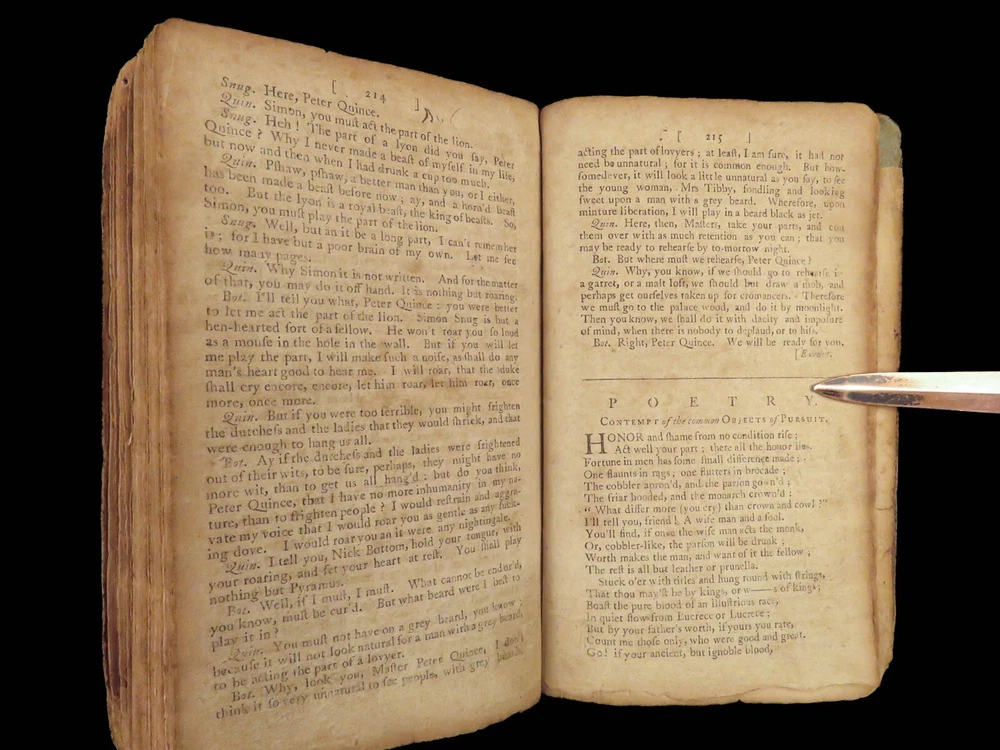 [ 214 ]
Snug. Here, Peter Quince.
Quin. Simon, you muſt act the part of the lion.
Snug. Heh ! The part of a lyon did you ſay, Peter
Quince ? Why I never made a beaſt of myſelf in my life,
but now and then when I had drunk a cup too much.
Quin. Pſhaw, pſhaw, a better man than you, or I either,
has been made a beaſt before now ; ay, and a horn'd beaſt
too. But the lyon is a royal beaſt, the king of beaſts. So,
Simon, you muſt play the part of the lion.
Snug. Well, but an it be a long part, I can't remember
it ; for I have but a poor brain of my own. Let me ſee
how many pages.
Quin. Why Simon it is not written. And for the matter
of that, you may do it off hand. It is nothing but roaring.
Bot. I'll tell you what, Peter Quince : you were better
to let me act the part of the lion. Simon Snug is but a
hen-hearted ſort of a fellow. He won't roar you ſo loud
as a mouſe in the hole in the wall. But if you will let
me play the part, I will make ſuch a noiſe, as ſhall do any
man's heart good to hear me. I will roar, that the duke
ſhall cry encore, encore, let him roar, let him roar, once
more, once more.
Quin. But if you were too terrible, you might frighten
the dutcheſs and the ladies that they would ſhriek, and that
were enough to hang us all.
Bot. Ay if the dutcheſs and the ladies were frightened
out of their wits, to be ſure, perhaps, they might have no
more wit, than to get us all hang'd : but do you think,
Peter Quince, that I have no more inhumanity in my na-
ture, than to frighten people ? I would reſtrain and aggra-
vate my voice that I would roar you as gentle as any ſuck-
ing dove. I would roar you an it were any nightingale.
Quin. I tell you, Nick Bottom, hold your tongue, with
your roaring, and ſet your heart at reſt. You ſhall play
nothing but Pyramus.
Bot. Well, if I muſt, I muſt. What cannot be endur'd,
you know, muſt be cur'd. But what beard were I beſt to
play it in ?
Quin. You muſt not have on a grey beard, you know ;
becauſe it will not look natural for a man with a grey beard,
to be acting the part of a lovyer.
Bot. Why, look you, Maſter Peter Quince, I don't
think it ſo very unnatural to ſee people, with grey beards,
[ 215 ]
acting the part of lovyers ; at leaſt, I am ſure, it had not
need be unnatural ; for it is common enough. But how-
ſomedever, it will look a little unnatural as you ſay, to ſee
the young woman, Mrs Tibby, fondling and looking
ſweet upon a man with a grey beard. Wherefore, upon
minture liberation, I will play in a beard black as jet.
Quin. Here, then, Maſters, take your parts, and con
them over with as much retention as you can ; that you
may be ready to rehearſe by to-morrow night.
Bot. But where muſt we rehearſe, Peter Quince ?
Quin. Why, you know, if we ſhould go to rehearſe in
a garret, or a malt loft, we ſhould but draw a mob, and
perhaps get ourſelves taken up for cromancers. Therefore
we muſt go to the palace wood, and do it by moonlight.
Then you know, we ſhall do it with dacity and impoſure
of mind, when there is nobody to deplaud, or to hiſs.
Bot. Right, Peter Quince. We will be ready for you.
[Exeunt.
POETRY.
CONTEMPT of the common OBJECTS of PURSUIT.
HONOR and ſhame from no condition riſe ;
Act well your part ; there all the honor lies.
Fortune in men has ſome ſmall difference made ;
One flaunts in rags ; one flutters in brocade ;
The cobbler apron'd, and the parſon gown'd ;
The friar hooded, and the monarch crown'd :
“ What differ more (you cry) than crown and cowl ?”
I'll tell you, friend ! A wiſe man and a fool.
You'll find, if once the wiſe man acts the monk,
Or, cobbler-like, the parſon will be drunk ;
Worth makes the man, and want of it the fellow ;
The reſt is all but leather or prunella.
Stuck o'er with titles and hung round with ſtrings,
That thou may'ſt be by kings, or w——s of kings ;
Boaſt the pure blood of an illuſtrious race,
In quiet flow from Lucrece or Lucrece ;
But by your father's worth, if yours you rate,
Count me thoſe only, who were good and great.
Go ! if your ancient, but ignoble blood,